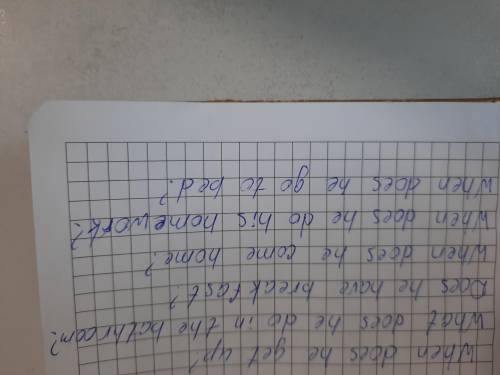 When does he get up?
What does he do in the bathroom?
Does he have breakfast?
When does he come home?
When does he do his homework?
When does he go to bed?